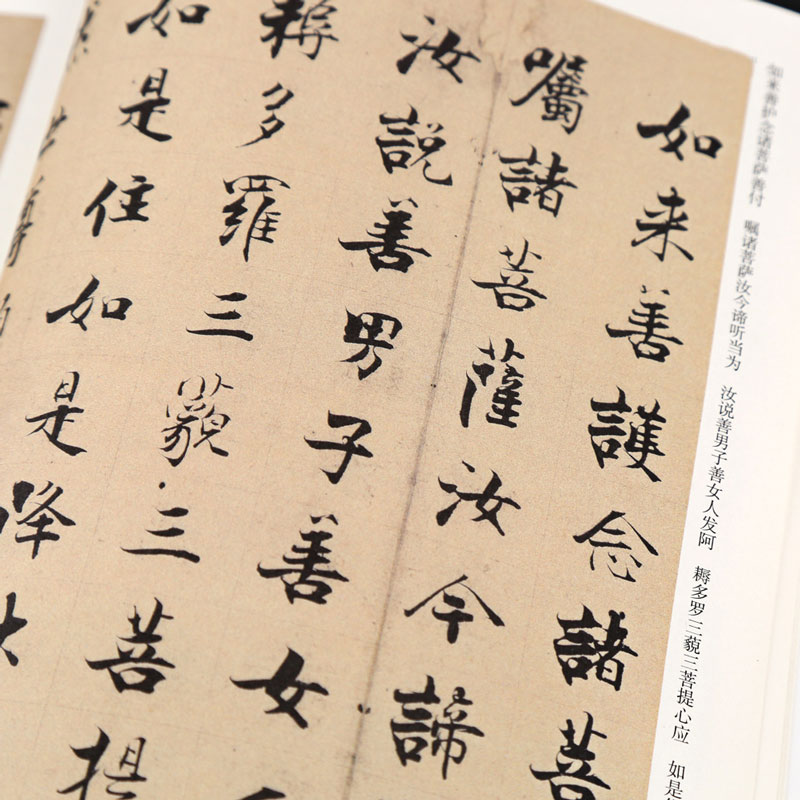 如来善護念諸菩
囑諸菩薩汝今諦
汝說善男子善女
耨多羅三藐三菩提
如是住如是降
如来善护念诸菩萨善付 嘱诸菩萨汝今谛听当为 汝说善男子善女人发阿 耨多罗三藐三菩提心应 如是